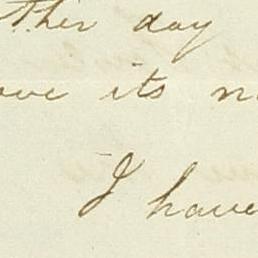 other day
ove its n
I have